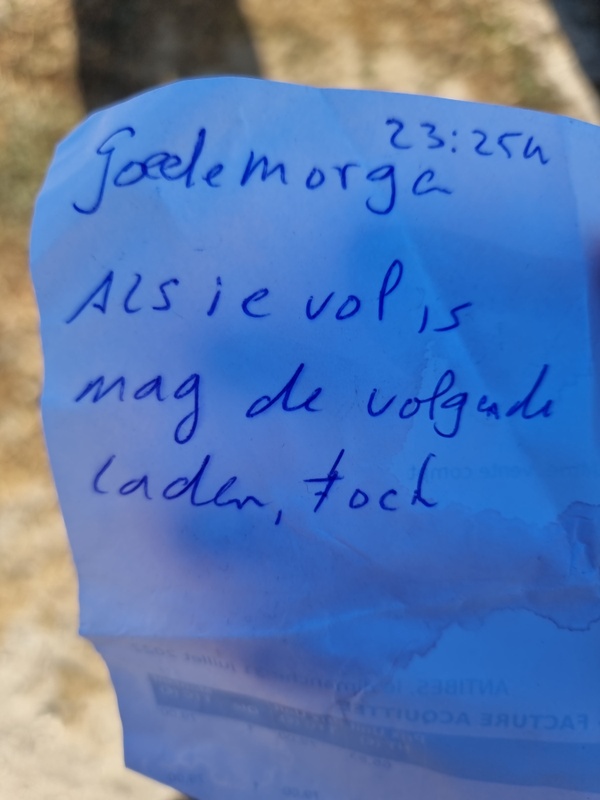 23:25u
Goedemorga
Als ie vol is
mag de volgende
laden, toch
ANTIBES, le
FACTURE ACQUITTÉE